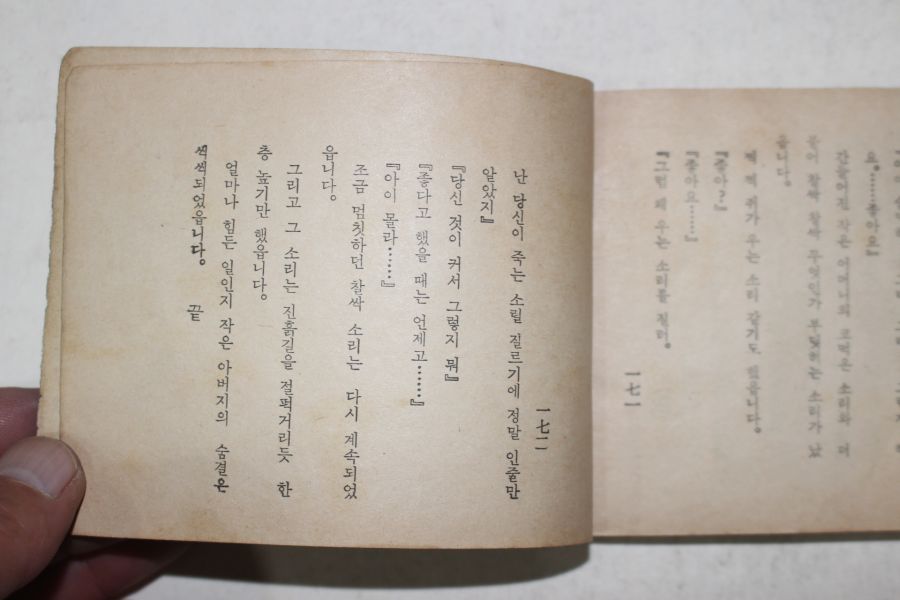 요。……좋아요』
간들어진 작은 어머니의 코먹은 소리와 더
찰싹 찰싹 무엇인가 부딪히는 소리가 났
읍니다。
쥐가 우는 소리 같기도 했읍니다。
『좋아?』
『좋아요……』
『그럼 왜 우는 소리를 질러。
一七一
一七二
난 당신이 죽는 소릴 질르기에 정말 인줄만
알았지』
『당신 것이 커서 그렇지 뭐』
『좋다고 했을 때는 언제고……』
『아이 몰라……』
조금 멈칫하던 찰싹 소리는 다시 계속되었
읍니다。
그리고 그 소리는 진흙길을 절퍽거리듯 한
층 높기만 했읍니다。
얼마나 힘든 일인지 작은 아버지의 숨결은
씩씩되었읍니다。 끝